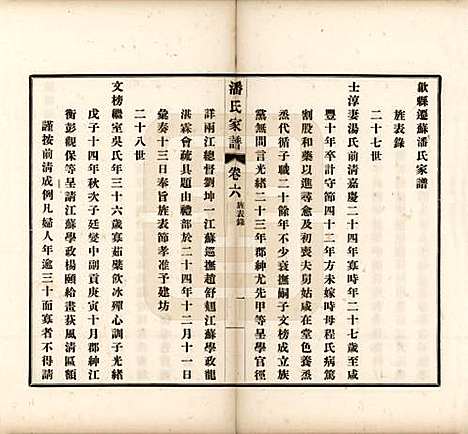 歙縣遷蘇潘氏家譜
旌表錄
二十七世
士淳妻湯氏前清嘉慶二十四年寡時年二十七歲至咸
豐十年卒守節四十二年方未嫁時母程氏病篤
割股和藥以進尋愈及初喪夫舅姑咸在堂色養烝
烝代循子職二十餘年不少衰撫嗣子文榜成立族
黨無間言光緒二十三年郡紳尤先甲等呈學官徑
潘氏家譜
卷六
旌表錄
一
詳兩江總督劉坤一江蘇巡撫趙舒翹江蘇學政龍
湛霖會疏具題由禮部於二十四年十二月十一日
彙奏十三日奉旨旌表節孝准予建坊
二十八世
文榜繼室吳氏年三十六歲寡茹櫱飲冰殫心訓子光緒
戊子十四年秋次子廷燮中副貢庚寅十月郡紳江
衡彭觀保等呈請江蘇學政楊頤給畫荻風清區額
謹按前清成例凡婦人年逾三十而寡者不得請